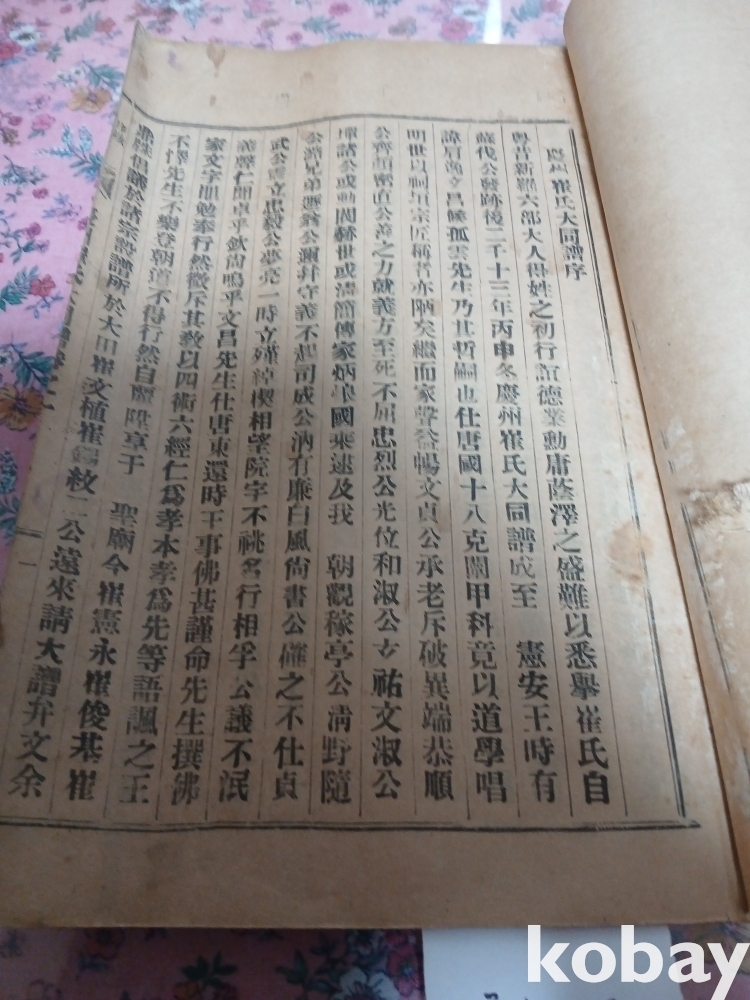 慶州崔氏大同譜序
粤昔新羅六部大人得姓之初行誼德業勳庸蔭澤之盛難以悉擧崔氏自
蘇伐公發跡後二千十三年丙申冬慶州崔氏大同譜成至 憲安王時有
諱肩逸文昌候孤雲先生乃其哲嗣也仕唐國十八克闡甲科竟以道學唱
明世以祠垣宗匠稱者亦陋矣繼而家聲益暢文貞公承老斥破異端恭順
公齊顔密直公善之力就義方至死不屈忠烈公光位和淑公玄祐文淑公
諸公或動閥赫世或淸簡傳家炳烺國乘逮及我 朝觀稼亭公淸野隨
公濟兄弟公瀰幷守義不起司成公汭有廉白風尙書公確之不仕貞
武公震立忠毅公夢亮一時立殣綽楔相望院宇不祧名行相孚公議不泯
義聲仁聞卓乎欽尙嗚乎文昌先生仕唐東還時王事佛甚謹命先生撰沸
家文字黽勉奉行然微斥其敎以四術六經仁爲孝本孝爲先等語諷之王
不懌先生不樂登朝道不得行然自麗陞享于 聖廟今崔憲永崔俊基崔
倡議於諸宗設譜所於大田崔汶植崔錫敎二公遠來請大譜弁文余
一
kobay